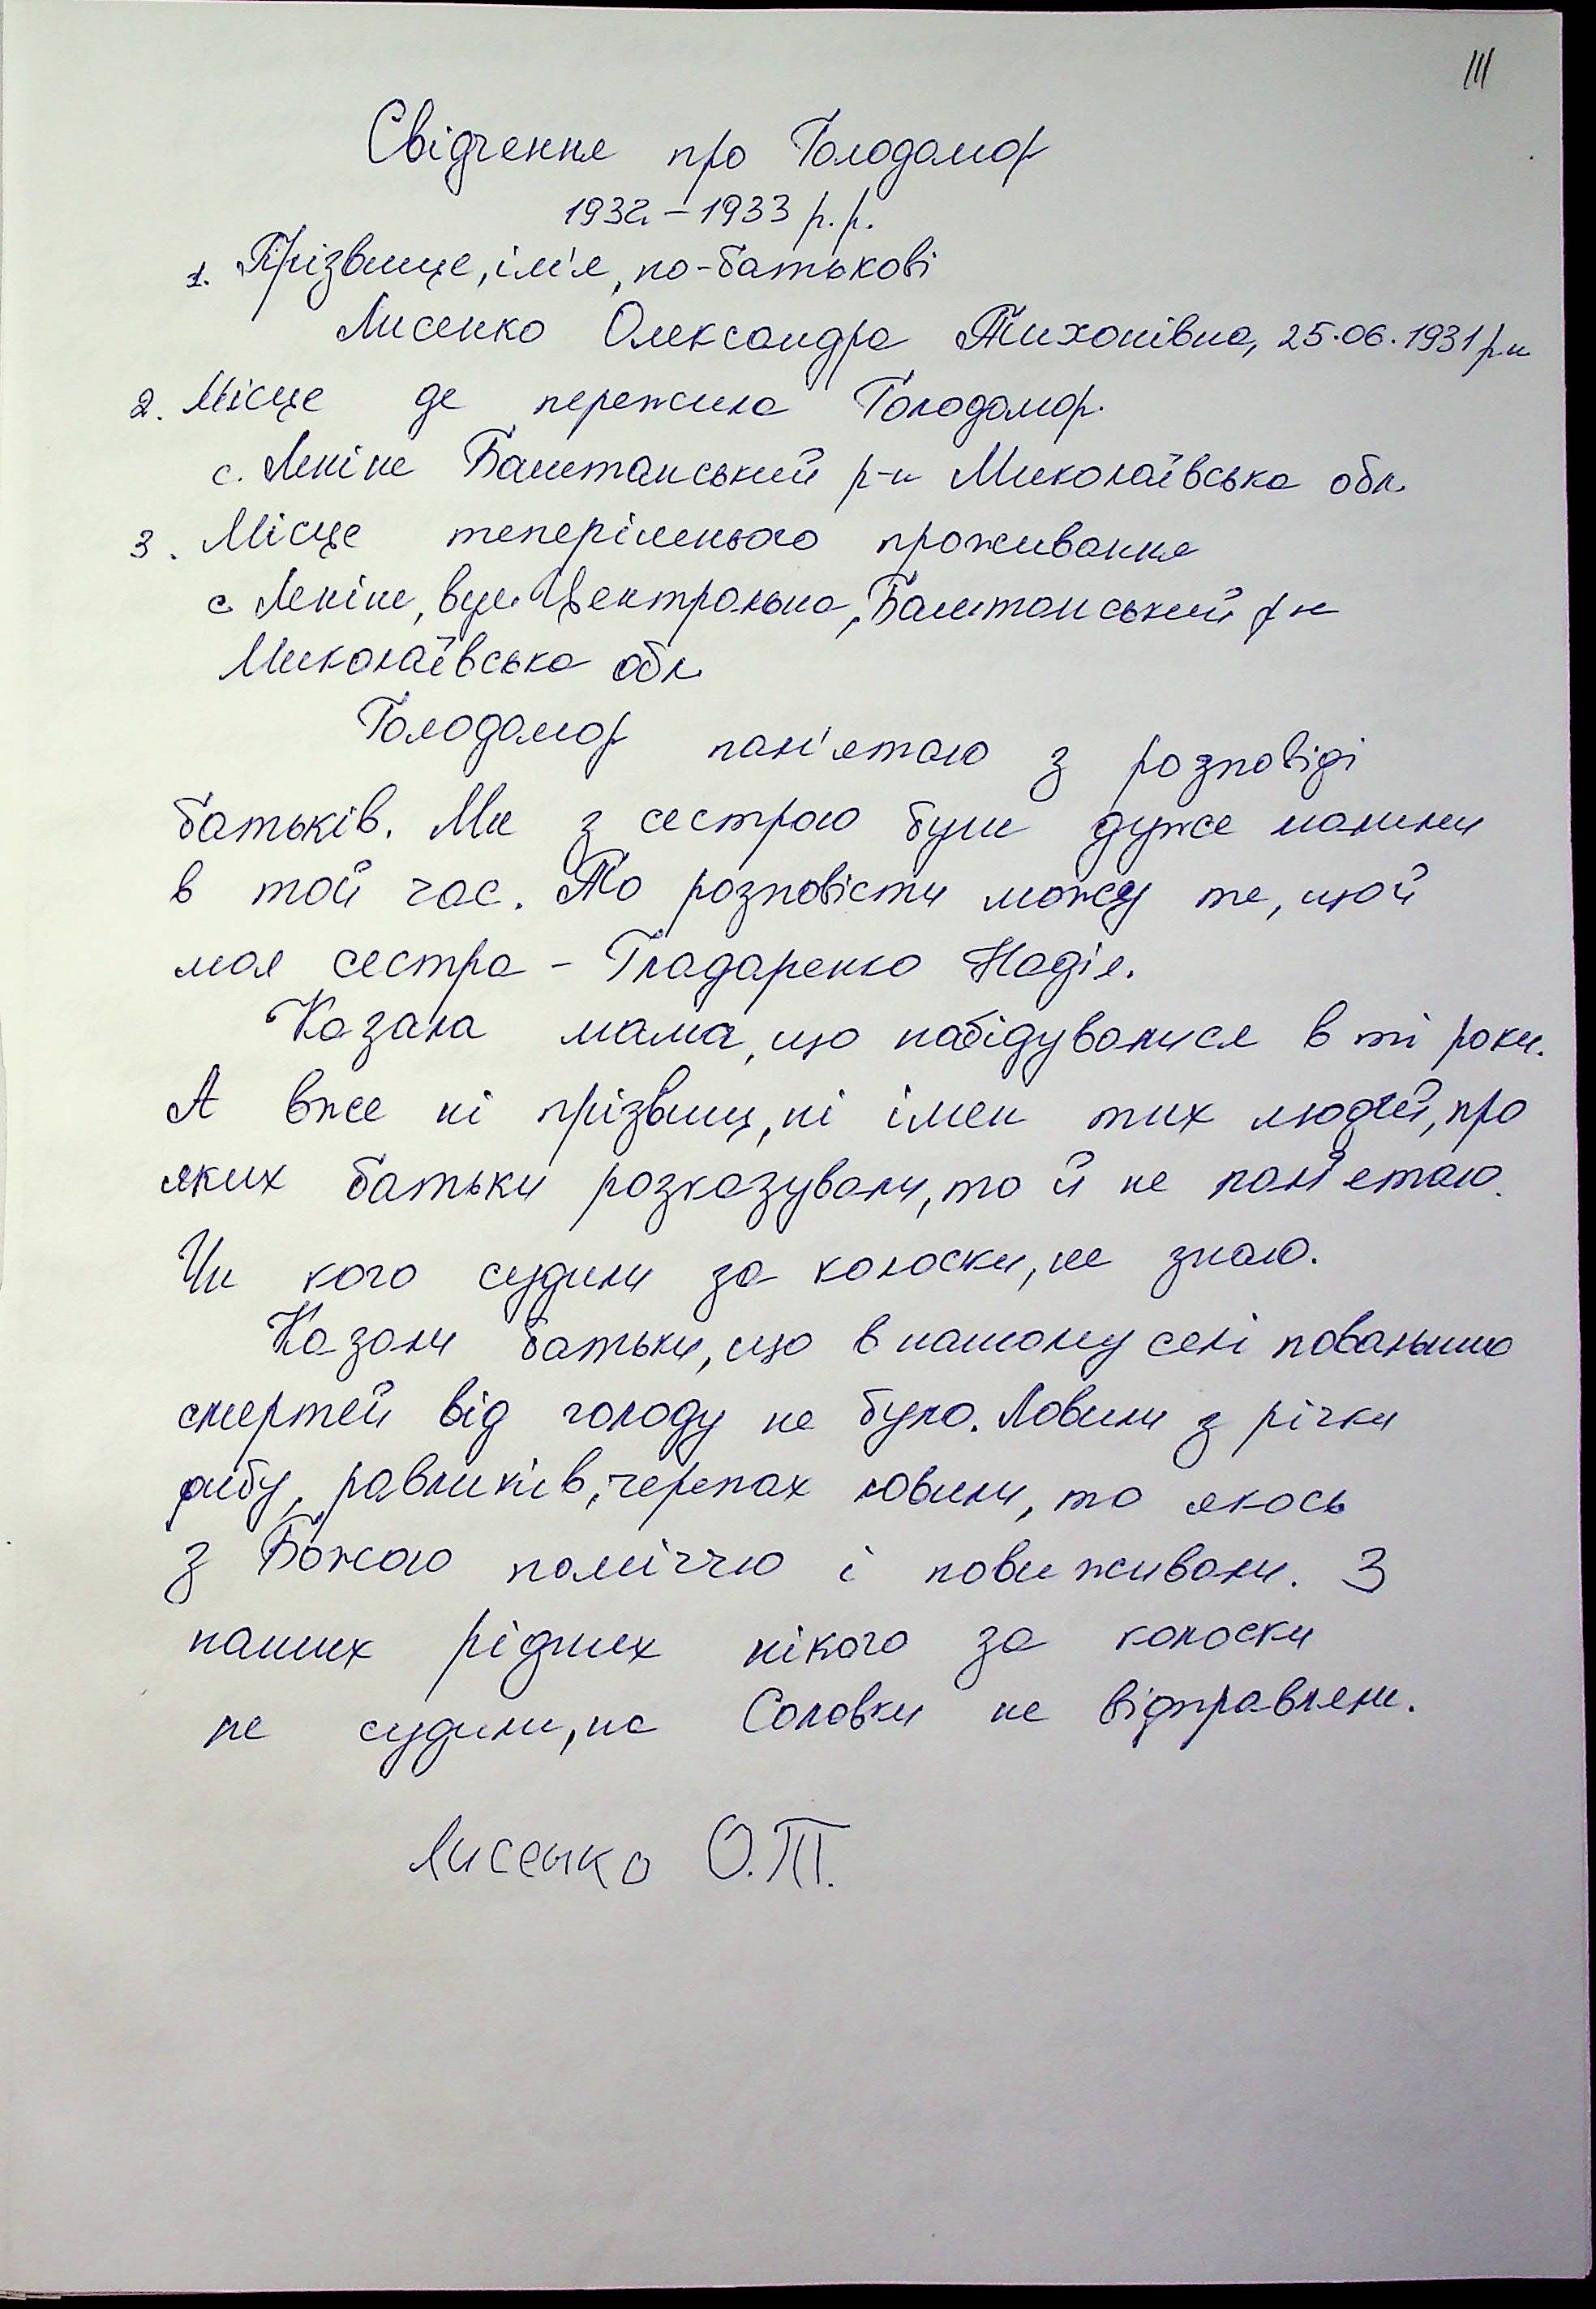 111
Свідчення про Голодомор
1932-1933 р.р.
1. Прізвище, ім'я, по-батькові
Лисенко Олександра Тихонівна, 25.06.1931 р.н
2. Місце де пережила Голодомор.
с. Леніне Баштанський р-н Миколаївська обл.
3. Місце теперішнього проживання
с Леніне, вул. Центральна, Баштанський р н
Миколаївська обл.
Голодомор пам'ятаю з розповіді
батьків. Ми з сестрою були дуже малими
в той час. То розповісти можу те, що й
моя сестра - Гладаренко Надія.
Казала мама, що набідувалися в ті роки.
А вже ні прізвищ, ні імен тих людей, про
яких батьки розказували, то й не пам'ятаю.
Чи кого судили за колоски, не знаю.
Казали батьки, що в нашому селі повальних
смертей від голоду не було. Ловили з річки
рибу, равликів, черепах ловили, то якось
з Божою поміччю і повиживали. З
наших рідних нікого за колоски
не судили, на Соловки не відправляли.
Лисенко О.Т.